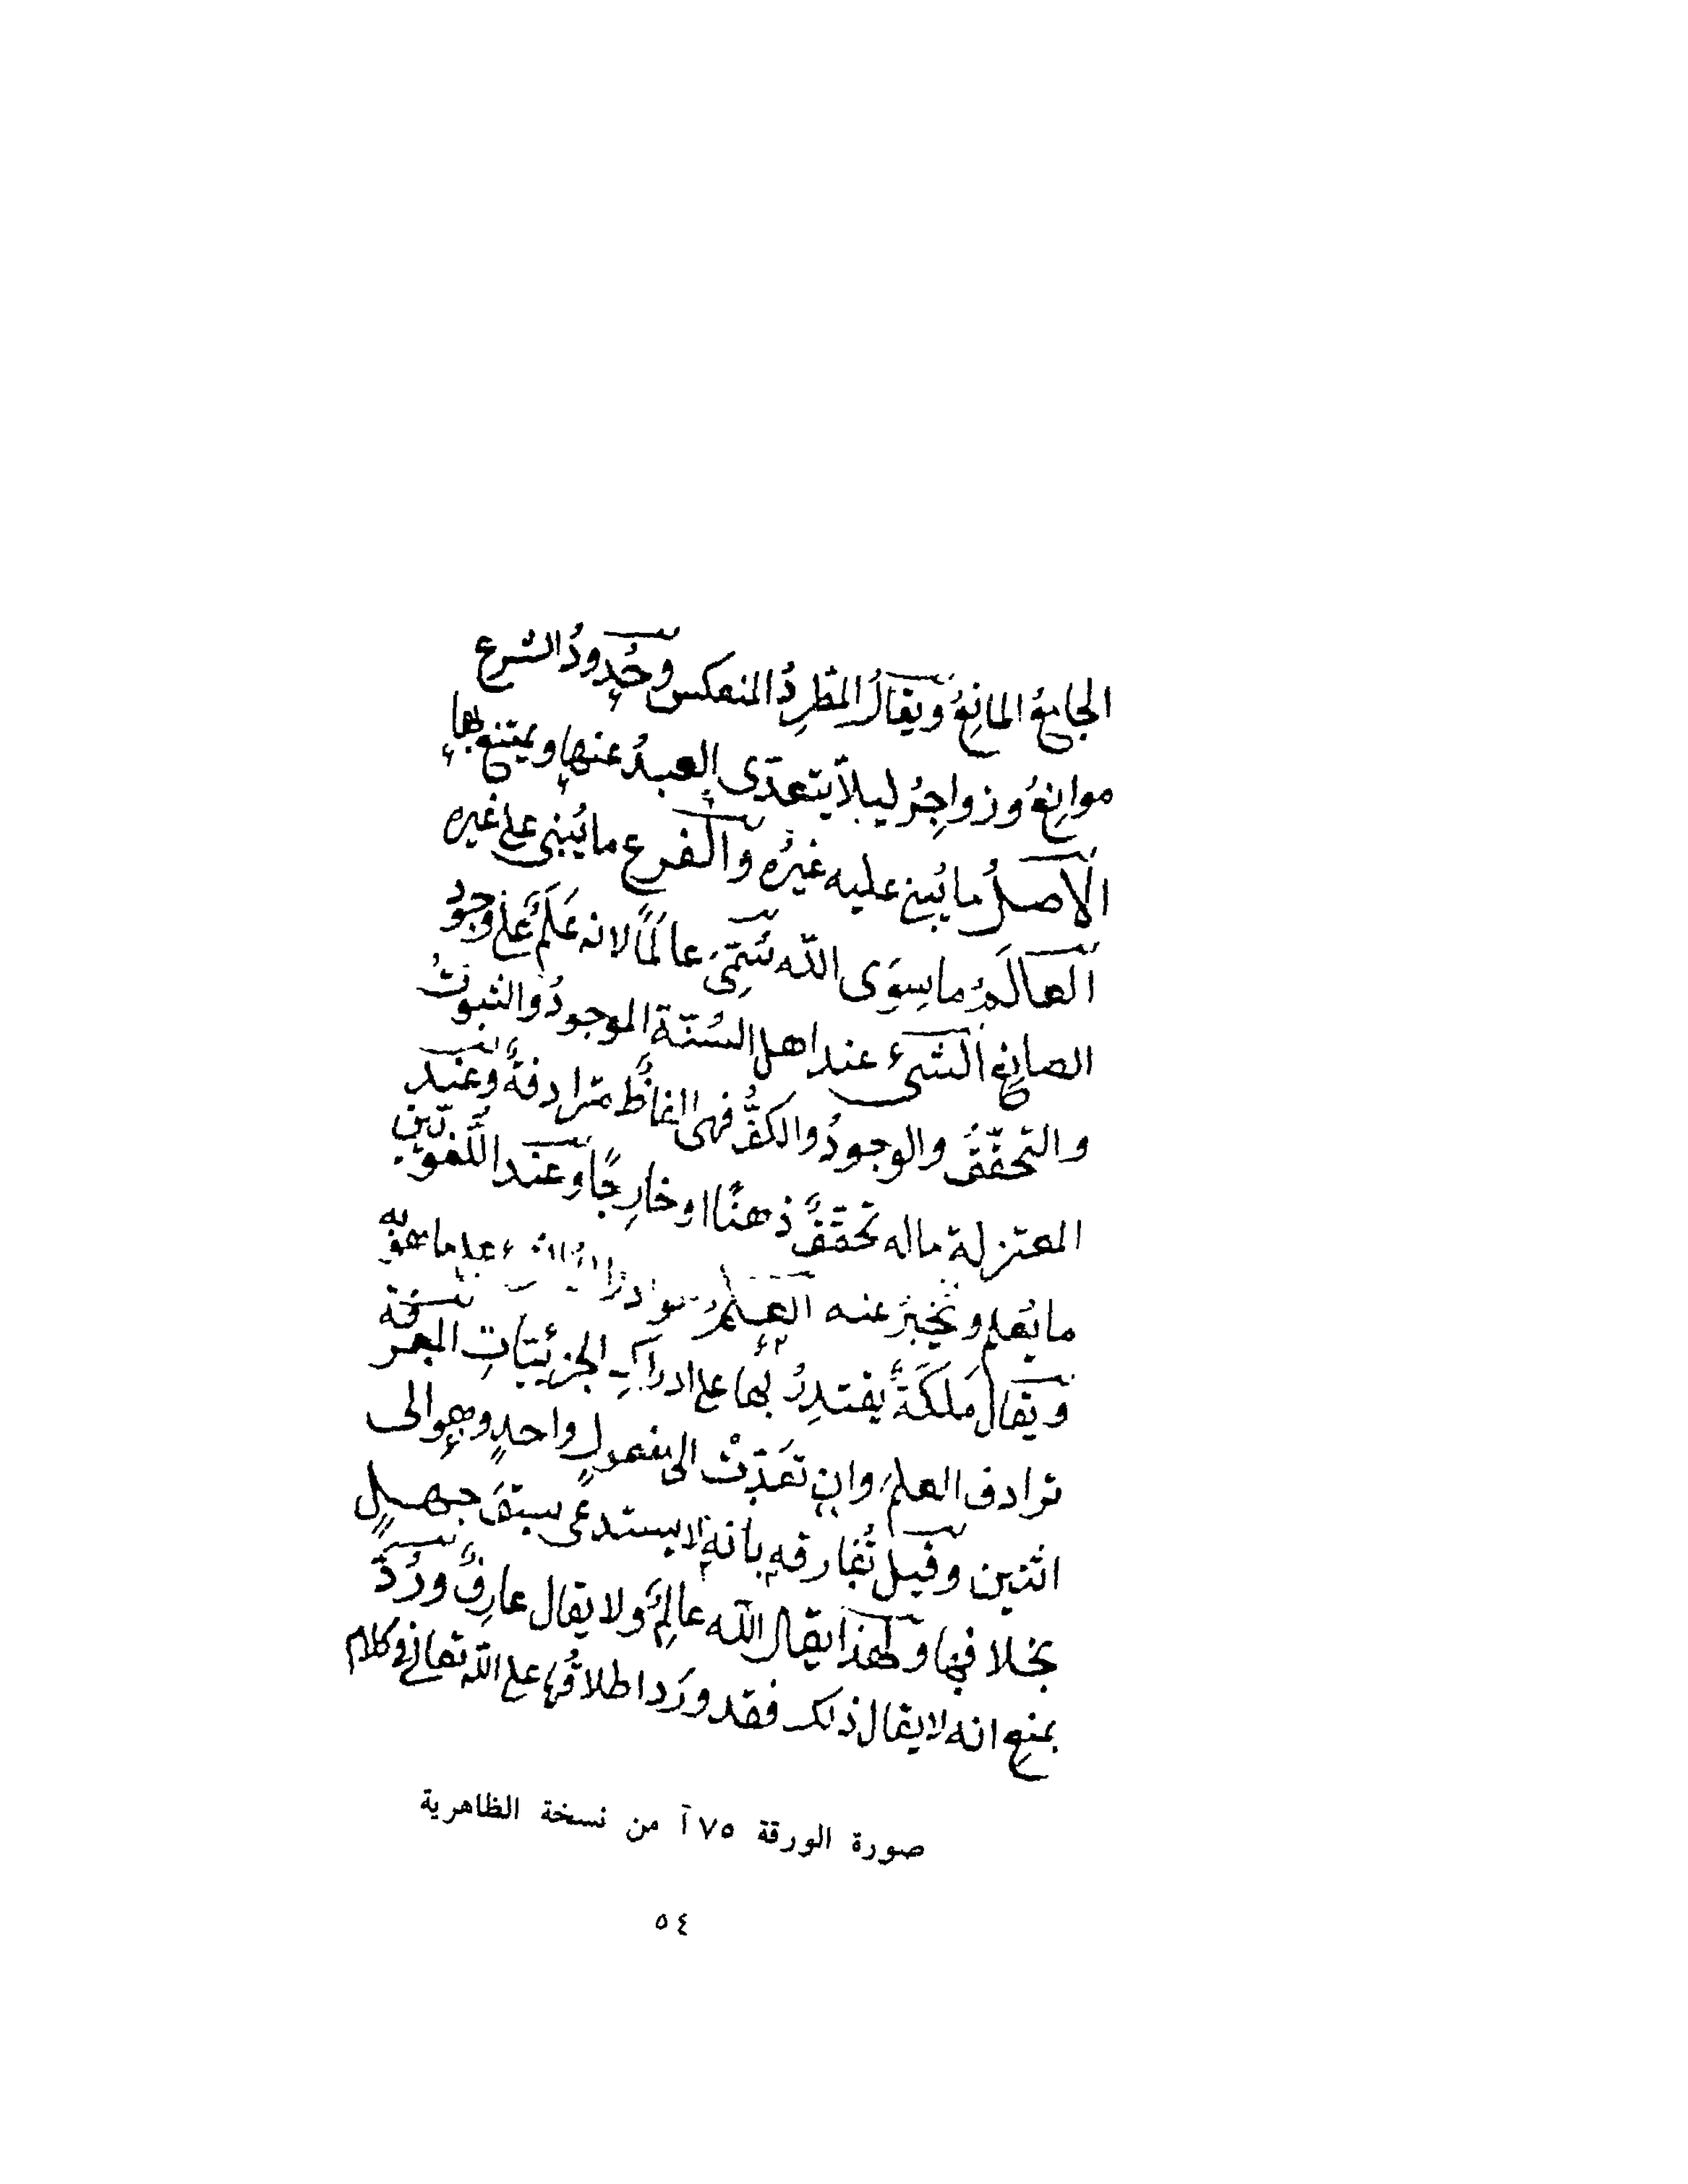 الجامِعُ المانِعُ ويقالُ المطَّرِدُ المنعكس وحُدودُ الشرع
موانِعُ وزواجِرُ ليلاّ يتعدّى العبدُ عنها ويمتنع بها
الأصلُ ما يُبنى عليه غيرُه والفرع ما يُبنى على غيره
العالَمُ ما سِوَى اللّه سُمِّىَ عالَمًا لانه عَلَمٌ على وجود
الصانِع الشىء عند اهل السُنّة الموجودُ والثبوتُ
والتحقّقُ والوجودُ والكَوْنُ فهى الفاظٌ مترادفةٌ وعند
المعتزلة ماله تحقّقٌ ذهنًا او خارِجًا وعند اللُّغويّين
ما يُعلم ويُخبَرُ عنه العلمُ هو ادراكُ الشىء على ما هو به
ويقال مَلَكَةٌ يقتدِرُ بها على ادراكِ الجزئيّاتِ المعرفة
ترادف العلم وان تعَدّتْ الى مفعولٍ واحدٍ وهو الى
اثنين وقيل تُفارقه بانه لا يستدعى سبقَ جهلٍ
بخلافها ولهذا يقال اللّه عالِمٌ ولا يقال عارِفٌ ورُدَّ
بمنع انه لا يقال ذلك فقد ورَد اطلاقُها على اللّه تعالى فى كلام
صورة الورقة ٧٥ آ من نسخة الظاهرية
٥٤